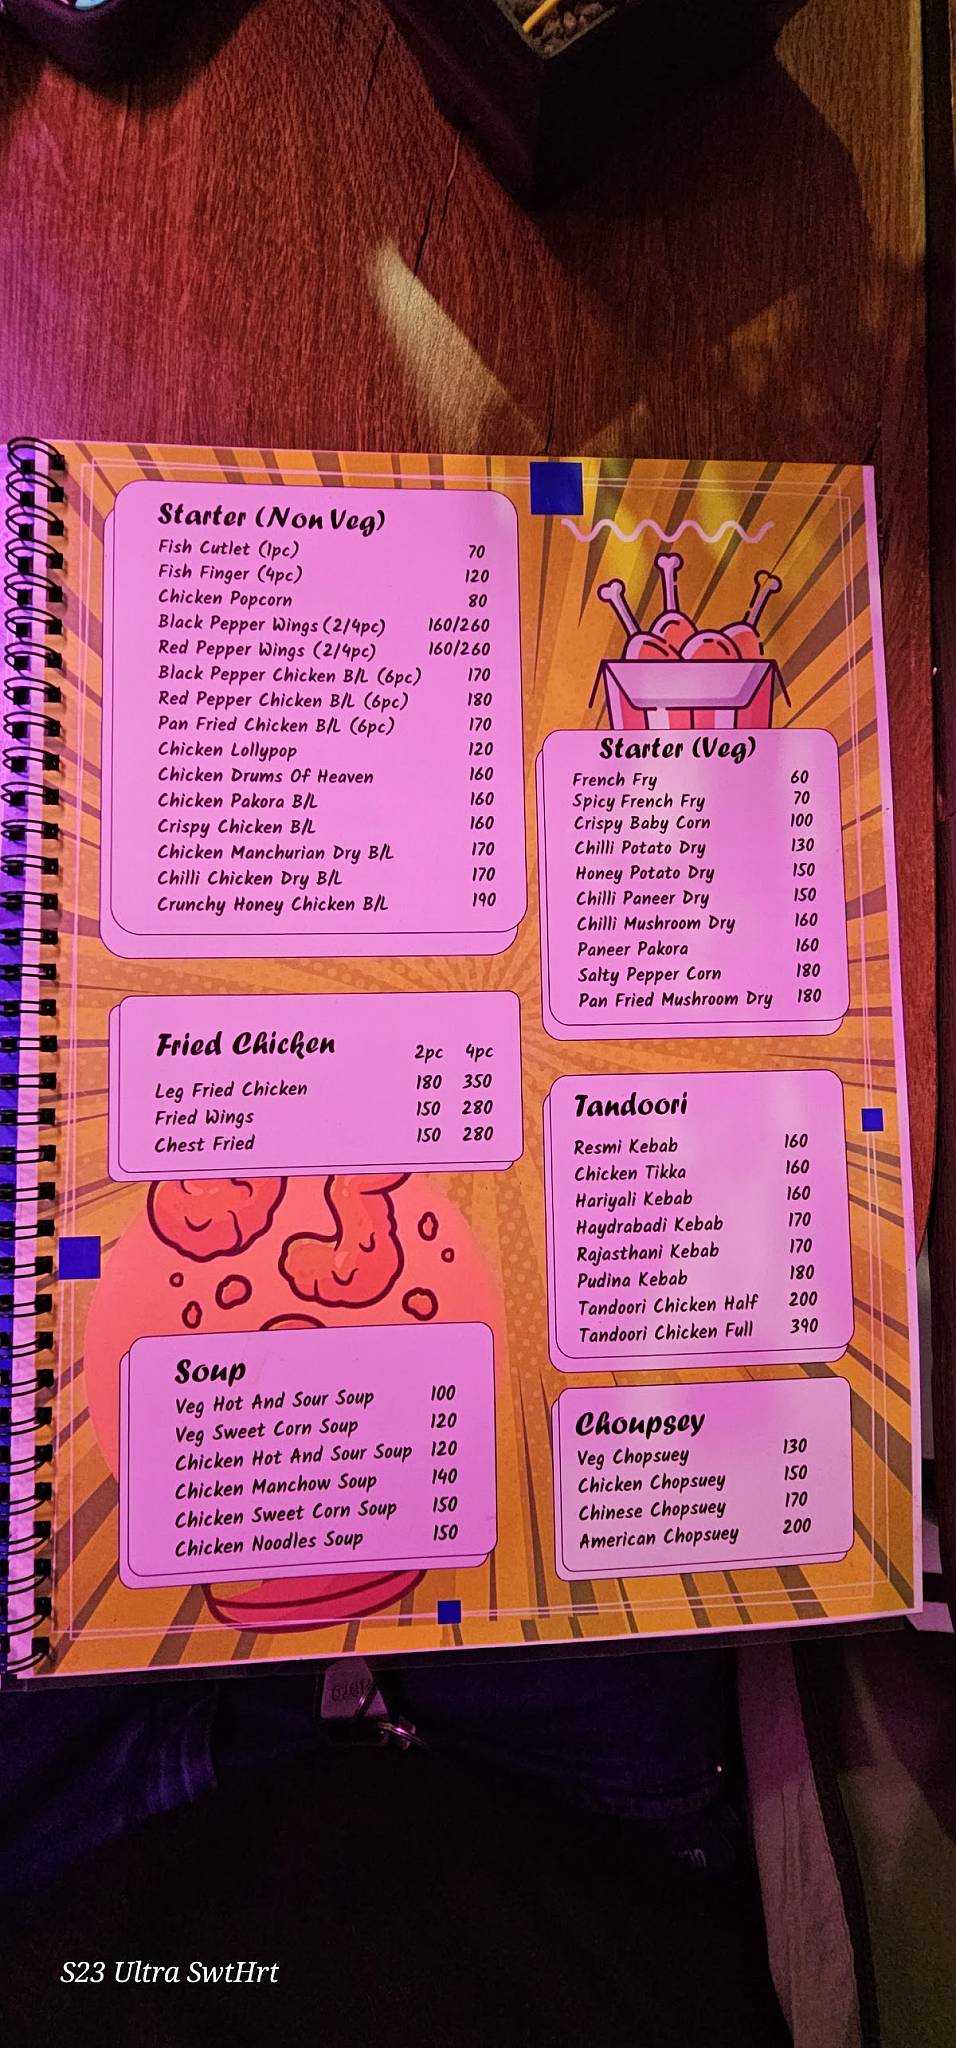 Starter (Non Veg)
Fish Cutlet (1pc) 70
Fish Finger (4pc) 120
Chicken Popcorn 80
Black Pepper Wings (2/4pc) 160/260
Red Pepper Wings (2/4pc) 160/260
Black Pepper Chicken B/L (6pc) 170
Red Pepper Chicken B/L (6pc) 180
Pan Fried Chicken B/L (6pc) 170
Chicken Lollypop 120
Chicken Drums Of Heaven 160
Chicken Pakora B/L 160
Crispy Chicken B/L 160
Chicken Manchurian Dry B/L 170
Chilli Chicken Dry B/L 170
Crunchy Honey Chicken B/L 190
Fried Chicken 2pc 4pc
Leg Fried Chicken 180 350
Fried Wings 150 280
Chest Fried 150 280
Soup
Veg Hot And Sour Soup 100
Veg Sweet Corn Soup 120
Chicken Hot And Sour Soup 120
Chicken Manchow Soup 140
Chicken Sweet Corn Soup 150
Chicken Noodles Soup 150
Starter (Veg)
French Fry 60
Spicy French Fry 70
Crispy Baby Corn 100
Chilli Potato Dry 130
Honey Potato Dry 150
Chilli Paneer Dry 150
Chilli Mushroom Dry 160
Paneer Pakora 160
Salty Pepper Corn 180
Pan Fried Mushroom Dry 180
Tandoori
Resmi Kebab 160
Chicken Tikka 160
Hariyali Kebab 160
Haydrabadi Kebab 170
Rajasthani Kebab 170
Pudina Kebab 180
Tandoori Chicken Half 200
Tandoori Chicken Full 390
Choupsey
Veg Chopsuey 130
Chicken Chopsuey 150
Chinese Chopsuey 170
American Chopsuey 200
S23 Ultra SwtHrt